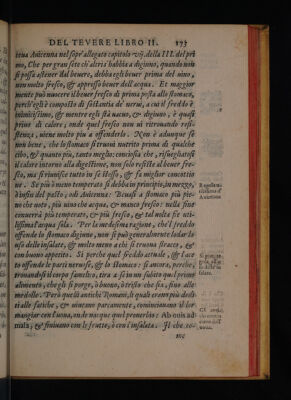 DEL TEVERE LIBRO II. 173
tena Auicenna nel sopr'allegato capitolo vij. della III. del pri
mo, Che per gran sete ch'altri habbia a digiuno, quando non
si possa astener dal beuere, debba egli beuer prima del uino,
non molto fresco, & appresso beuer dell'acqua. Et maggior
mente può nuocere il beuer fresco di prima posta allo stomaco,
perch'egli è composto di sostantia de' nerui, a cui il freddo è
inimicissimo, & mentre egli stà uacuo, & digiuno, è quasi
priuo di calore; onde quel fresco non ui ritrouando resi-
stenza, uiene molto piu a offenderlo. Non è adunque se
non bene, che lo stomaco si truoui nutrito prima di qualche
cibo, & quanto piu, tanto meglio: conciosia che, risuegliatosi
il calore interno alla digestione, non solo resiste al beuer fre-
sco, ma si riunisce tutto in se stesso, & fa miglior concottio
ne. Se più ò meno temperato si debba in principio, in mezzo,
ò in fine del pasto; odi Auicenna: Beuasi a stomaco più pie-
no che uoto, più uino che acqua, & manco fresco: nella fine
conuerrà più temperato, & più fresco, & tal uolta sie uti-
lissima l'acqua sola. Per la medesima ragione, che'l freddo
offende lo stomaco digiuno, non si può generalmente lodar lo
uso delle insalate, & molto meno a chi si truoua stracco, &
con buono appetito. Si perche quel freddo attuale, & l'ace
to offende le parti neruose, & lo stomaco: si ancora, perche,
trouandosi il corpo famelico, tira a se in un subito quel primo
alimento, che gli si porge, ò buono, ò tristo che sia, sino alle
medolle. Però quelli antichi Romani, li quali erano più dedi
ti alle fatiche, & uiueano parcamente, cominciauano il lor
mangiar con l'uoua, onde nacque quel prouerbio: Ab ouis ad
mala, & finiuano con le frutte, ò con l'insalata. Il che te-